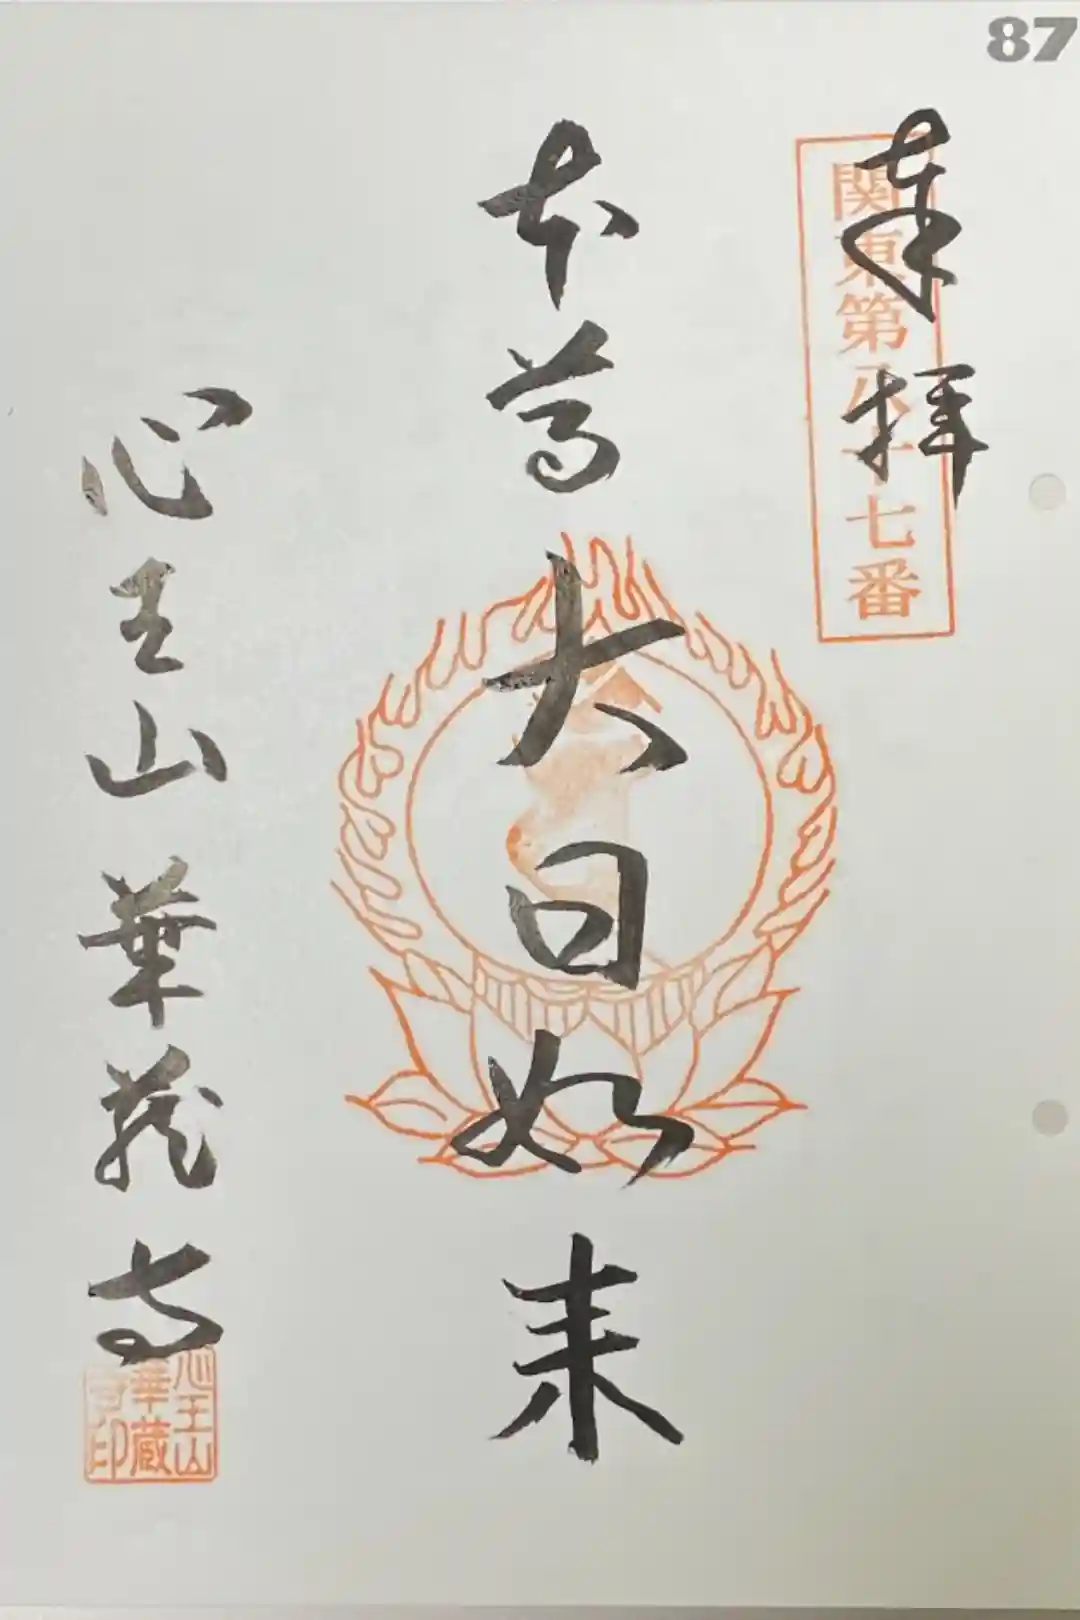 87
奉拝
関東第八十七番
本尊大日如来
心王山華蔵寺
心王山
華蔵
寺印